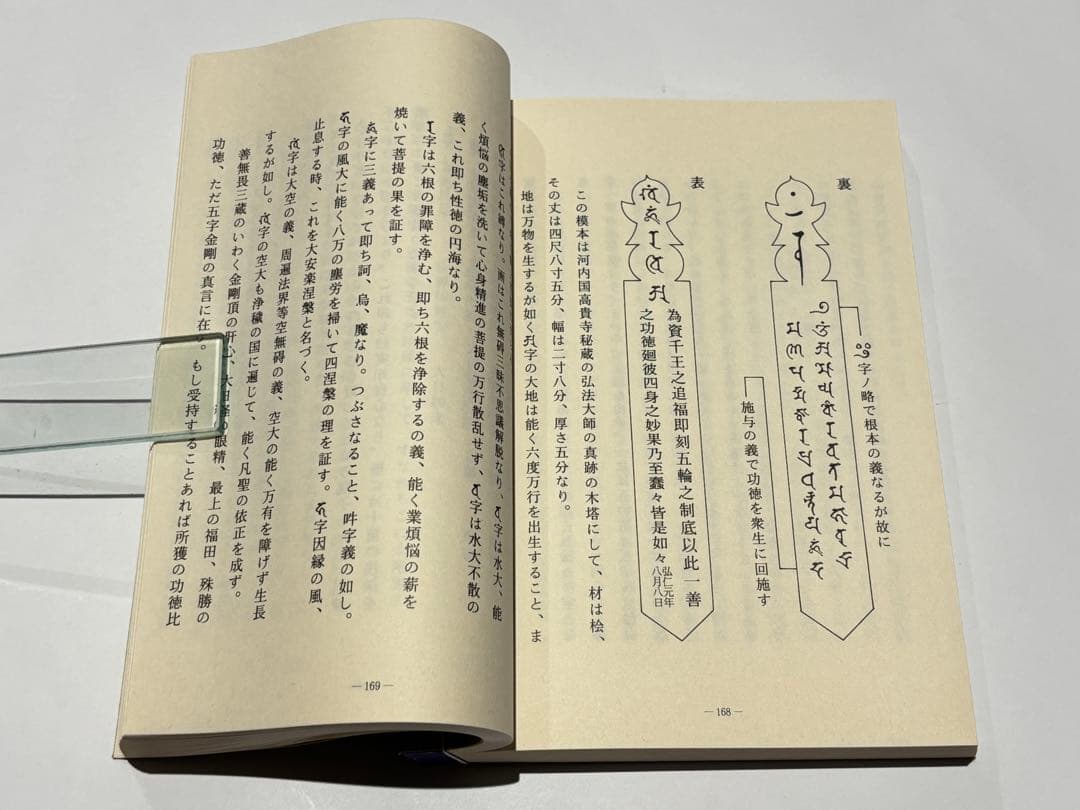 裏
字ノ略で根本の義なるが故に
施与の義で功徳を衆生に回施す
表
為資千王之追福即刻五輪之制底以此一善
之功徳廻彼四身之妙果乃至蠢々皆是如々
弘仁元年
八月八日
この模本は河内国高貴寺秘蔵の弘法大師の真跡の木塔にして、材は桧、
その丈は四尺八寸五分、幅は二寸八分、厚さ五分なり。
地は万物を生するが如く字の大地は能く六度万行を出生すること、ま
―168―
字はこれ禅なり。画はこれ無碍三昧不思議解脱なり、字は水大、能
く煩悩の塵垢を洗いて心身精進の菩提の万行散乱せず、字は水大不散の
義、これ即ち性徳の円海なり。
字は六根の罪障を浄む、即ち六根を浄除するの義、能く業煩悩の薪を
焼いて菩提の果を証す。
字に三義あって即ち訶、烏、魔なり。つぶさなること、吽字義の如し。
字の風大に能く八万の塵労を掃いて四涅槃の理を証す。字因縁の風、
止息する時、これを大安楽涅槃と名づく。
字は大空の義、周遍法界等空無碍の義、空大の能く万有を障げず生長
するが如し。字の空大も浄穢の国に遍じて、能く凡聖の依正を成ず。
善無畏三蔵のいわく金剛頂の肝心、大日経の眼精、最上の福田、殊勝の
功徳、ただ五字金剛の真言に在り。もし受持することあれば所獲の功徳比
―169―